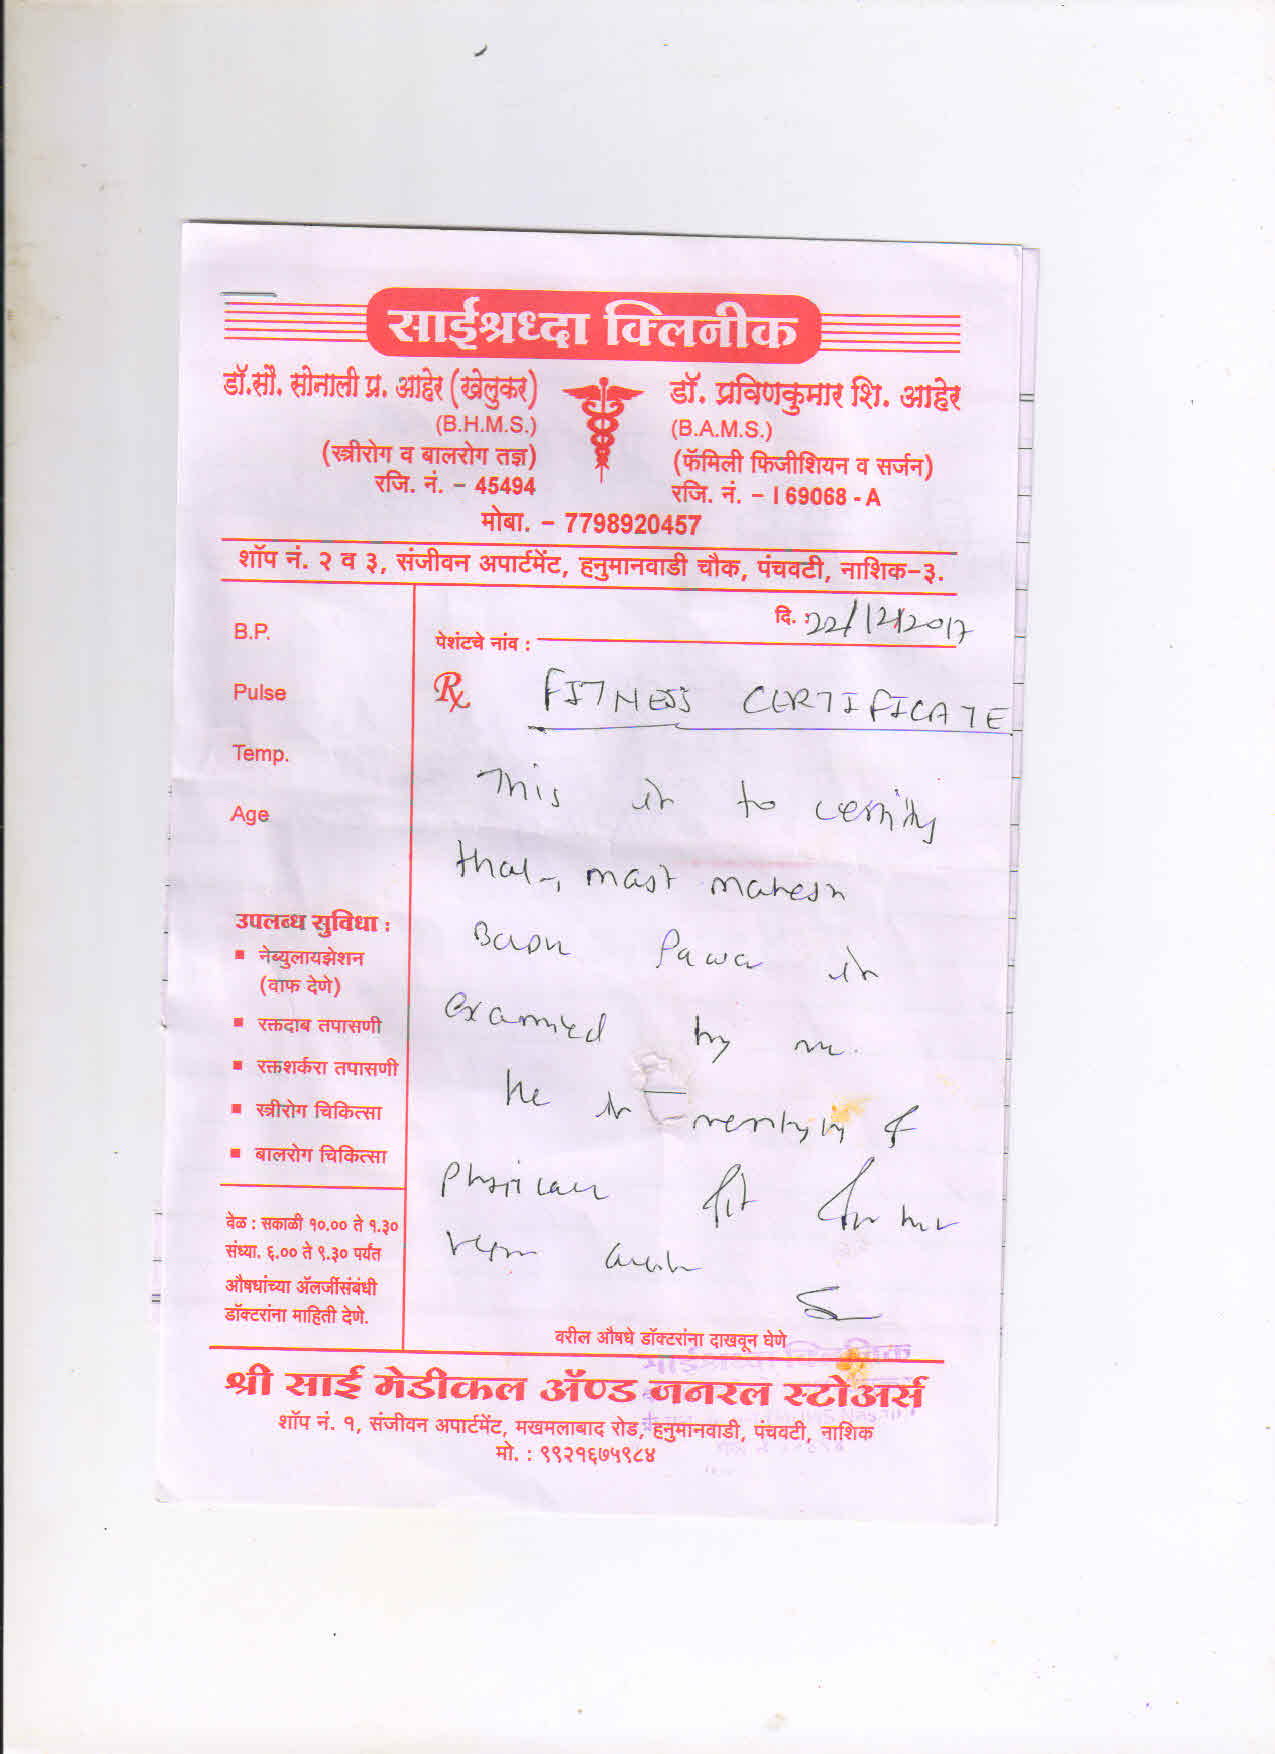 साईश्रध्दा क्लिनीक
डॉ.सौ. सोनाली प्र. आहेर (खेलुकर)
(B.H.M.S.)
(स्त्रीरोग व बालरोग तज्ञ)
रजि. नं. – 45494
डॉ. प्रविणकुमार शि. आहेर
(B.A.M.S.)
(फॅमिली फिजीशियन व सर्जन)
रजि. नं. – I 69068 - A
मोबा. – 7798920457
शॉप नं. २ व ३, संजीवन अपार्टमेंट, हनुमानवाडी चौक, पंचवटी, नाशिक-३.
दि. : 22/12/2017
पेशंटचे नांव :
B.P.
Pulse
Temp.
Age
उपलब्ध सुविधा :
▪ नेब्युलायझेशन
(वाफ देणे)
▪ रक्तदाब तपासणी
▪ रक्तशर्करा तपासणी
▪ स्त्रीरोग चिकित्सा
▪ बालरोग चिकित्सा
वेळ : सकाळी १०.०० ते १.३०
संध्या. ६.०० ते ९.३० पर्यंत
औषधांच्या अ‍ॅलर्जीसंबंधी
डॉक्टरांना माहिती देणे.
Rx FITNESS CERTIFICATE
This is to certify
that, mast mahesh
Pawar is
examined by me.
he is mentally &
physically fit for his
वरील औषधे डॉक्टरांना दाखवून घेणे
श्री साई मेडीकल ॲण्ड जनरल स्टोअर्स
शॉप नं. १, संजीवन अपार्टमेंट, मखमलाबाद रोड, हनुमानवाडी, पंचवटी, नाशिक
मो. : ९९२१६७५९८४
साईश्रध्दा क्लिनीक